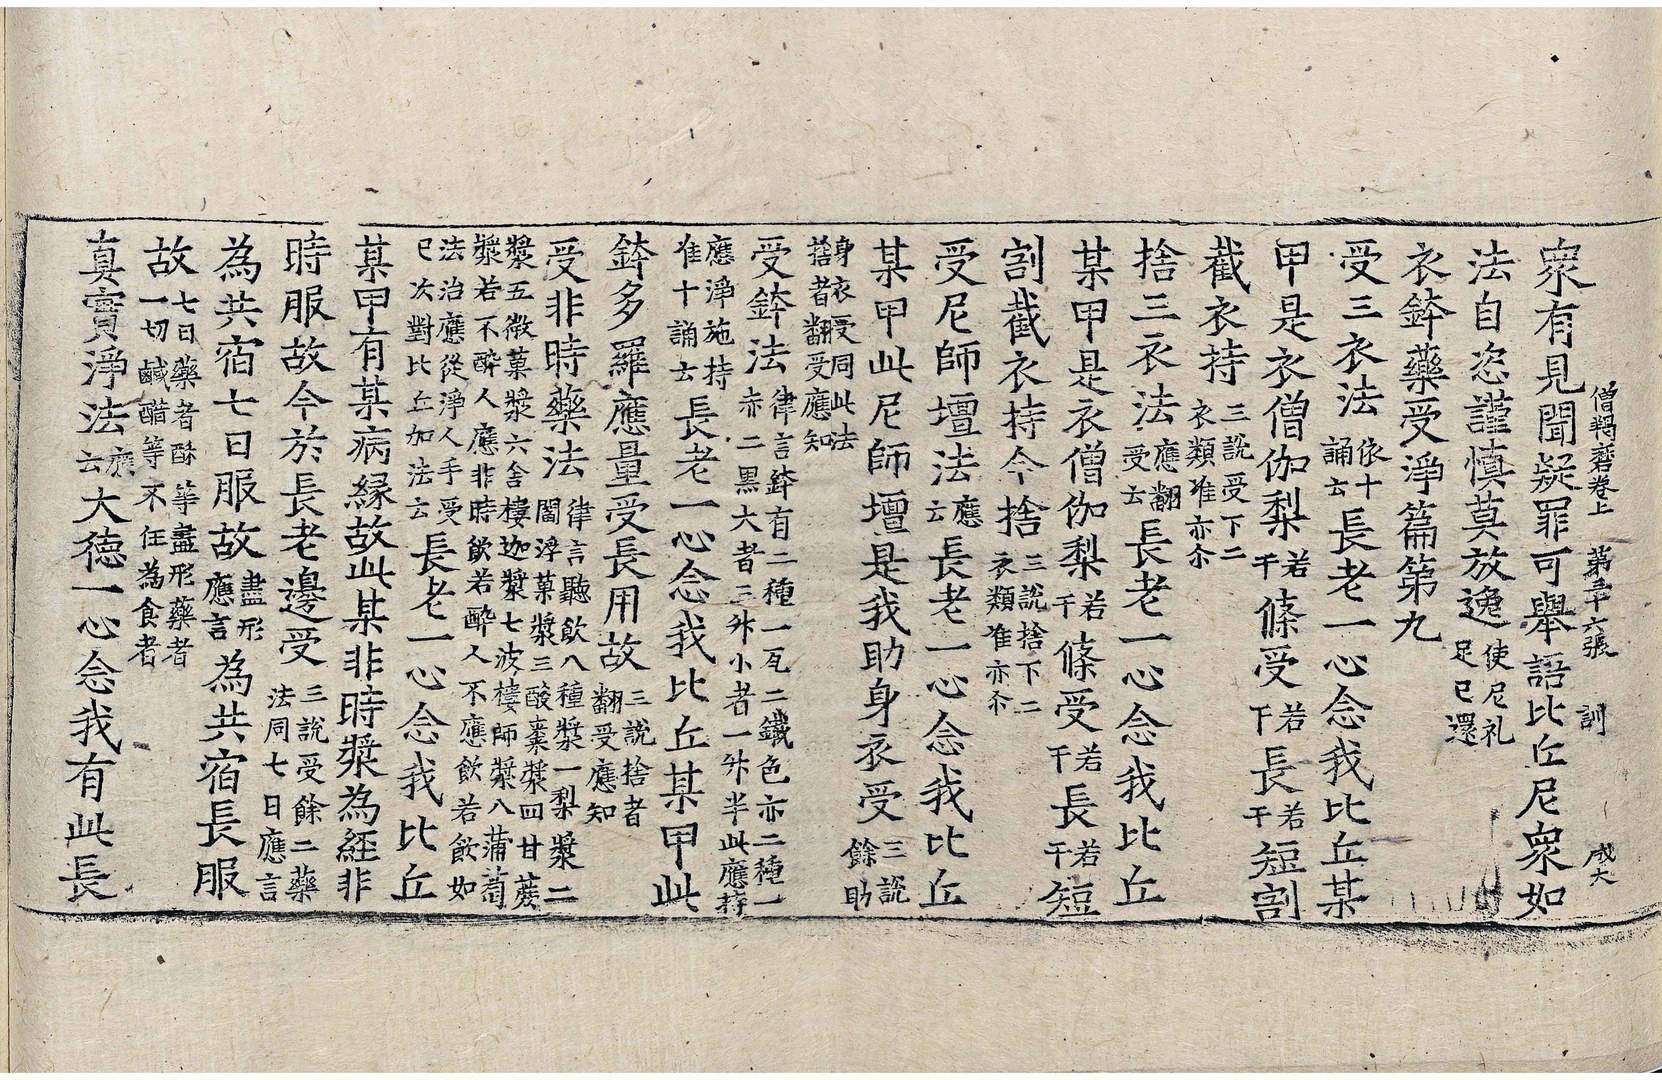 僧羯磨卷上　第三十六張　訓　成大
衆有見聞疑罪可舉語比丘尼衆如
法自恣謹慎莫放逸使尼礼足已還
衣鉢藥受淨篇第九
受三衣法依十誦云長老一心念我比丘某
甲是衣僧伽梨若干條受若干長若干短割
截衣持三説受下二衣類准亦尒
捨三衣法應翻受云長老一心念我比丘
某甲是衣僧伽梨若干條受若干長若干短
割截衣持今捨三説捨下二衣類准亦尒
受尼師壇法應云長老一心念我比丘
某甲此尼師壇是我助身衣受三説餘助
身衣受同此法捨者翻受應知
受鉢法律言鉢有二種一瓦二鐵色亦二種一赤二黑大者三升小者一升半此應持
應淨施持准十誦云長老一心念我比丘某甲此
鉢多羅應量受長用故三説捨者翻受應知
受非時藥法律言聽飲八種漿一梨漿二閻浮菓漿三酸棗漿四甘蔗
漿五微菓漿六舍樓伽漿七波樓師漿八蒲萄漿若不醉人應非時飲若醉人不應飲若飲如
法治應從淨人手受已次對比丘加法云長老一心念我比丘
某甲有某病緣故此某非時漿為經非
時服故今於長老邊受三説受餘二藥法同七日應言
為共宿七日服故盡形應言為共宿長服
故七日藥者酥等盡形藥者一切鹹醋等不任為食者
真實淨法應云大德一心念我有此長